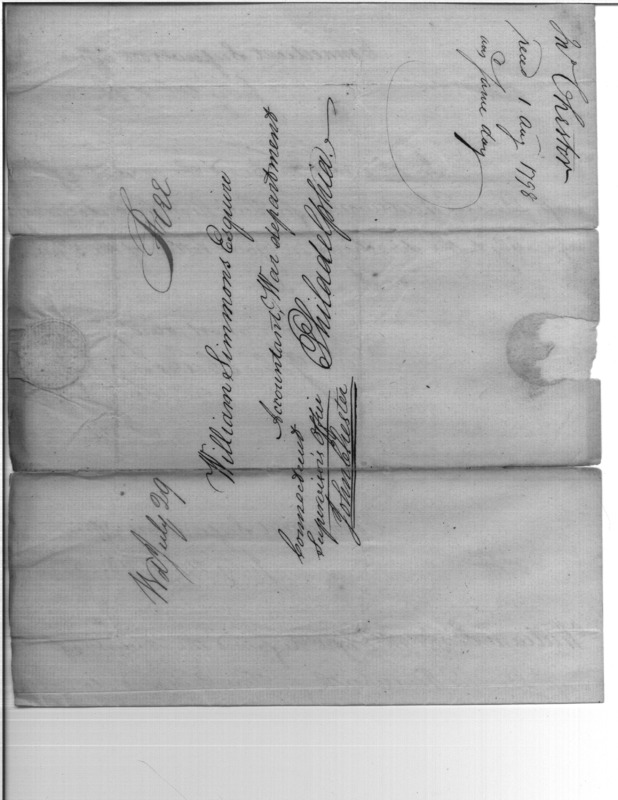 Free
Wd July 29
William Simmons Esquire
Accountant, War department
Philadelphia.
Connecticut
Supervisors Office
John Chester
Mr Chester
recd 1 Aug 1798
ans same day